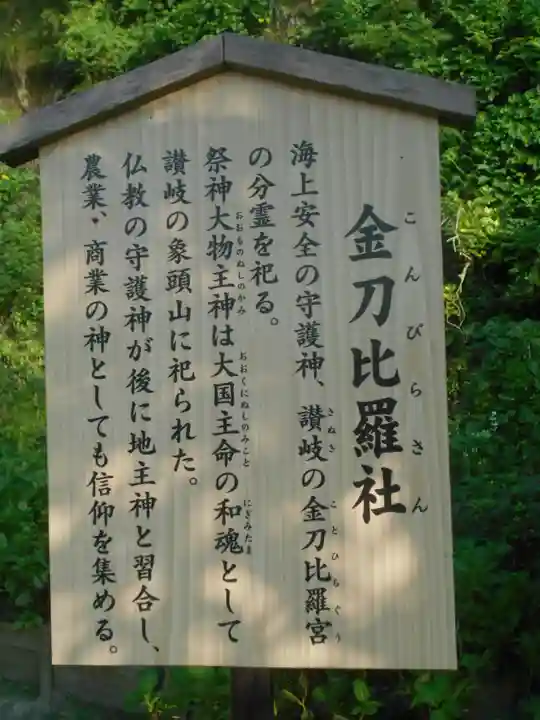 金刀比羅社
こんぴらさん
海上安全の守護神、讃岐の金刀比羅宮
さぬき
ことひらぐう
の分霊を祀る。
祭神大物主神は大国主命の和魂として
おおものぬしのかみ
おおくにぬしのみこと
にぎみたま
讃岐の象頭山に祀られた。
仏教の守護神が後に地主神と習合し、
農業、商業の神としても信仰を集める。